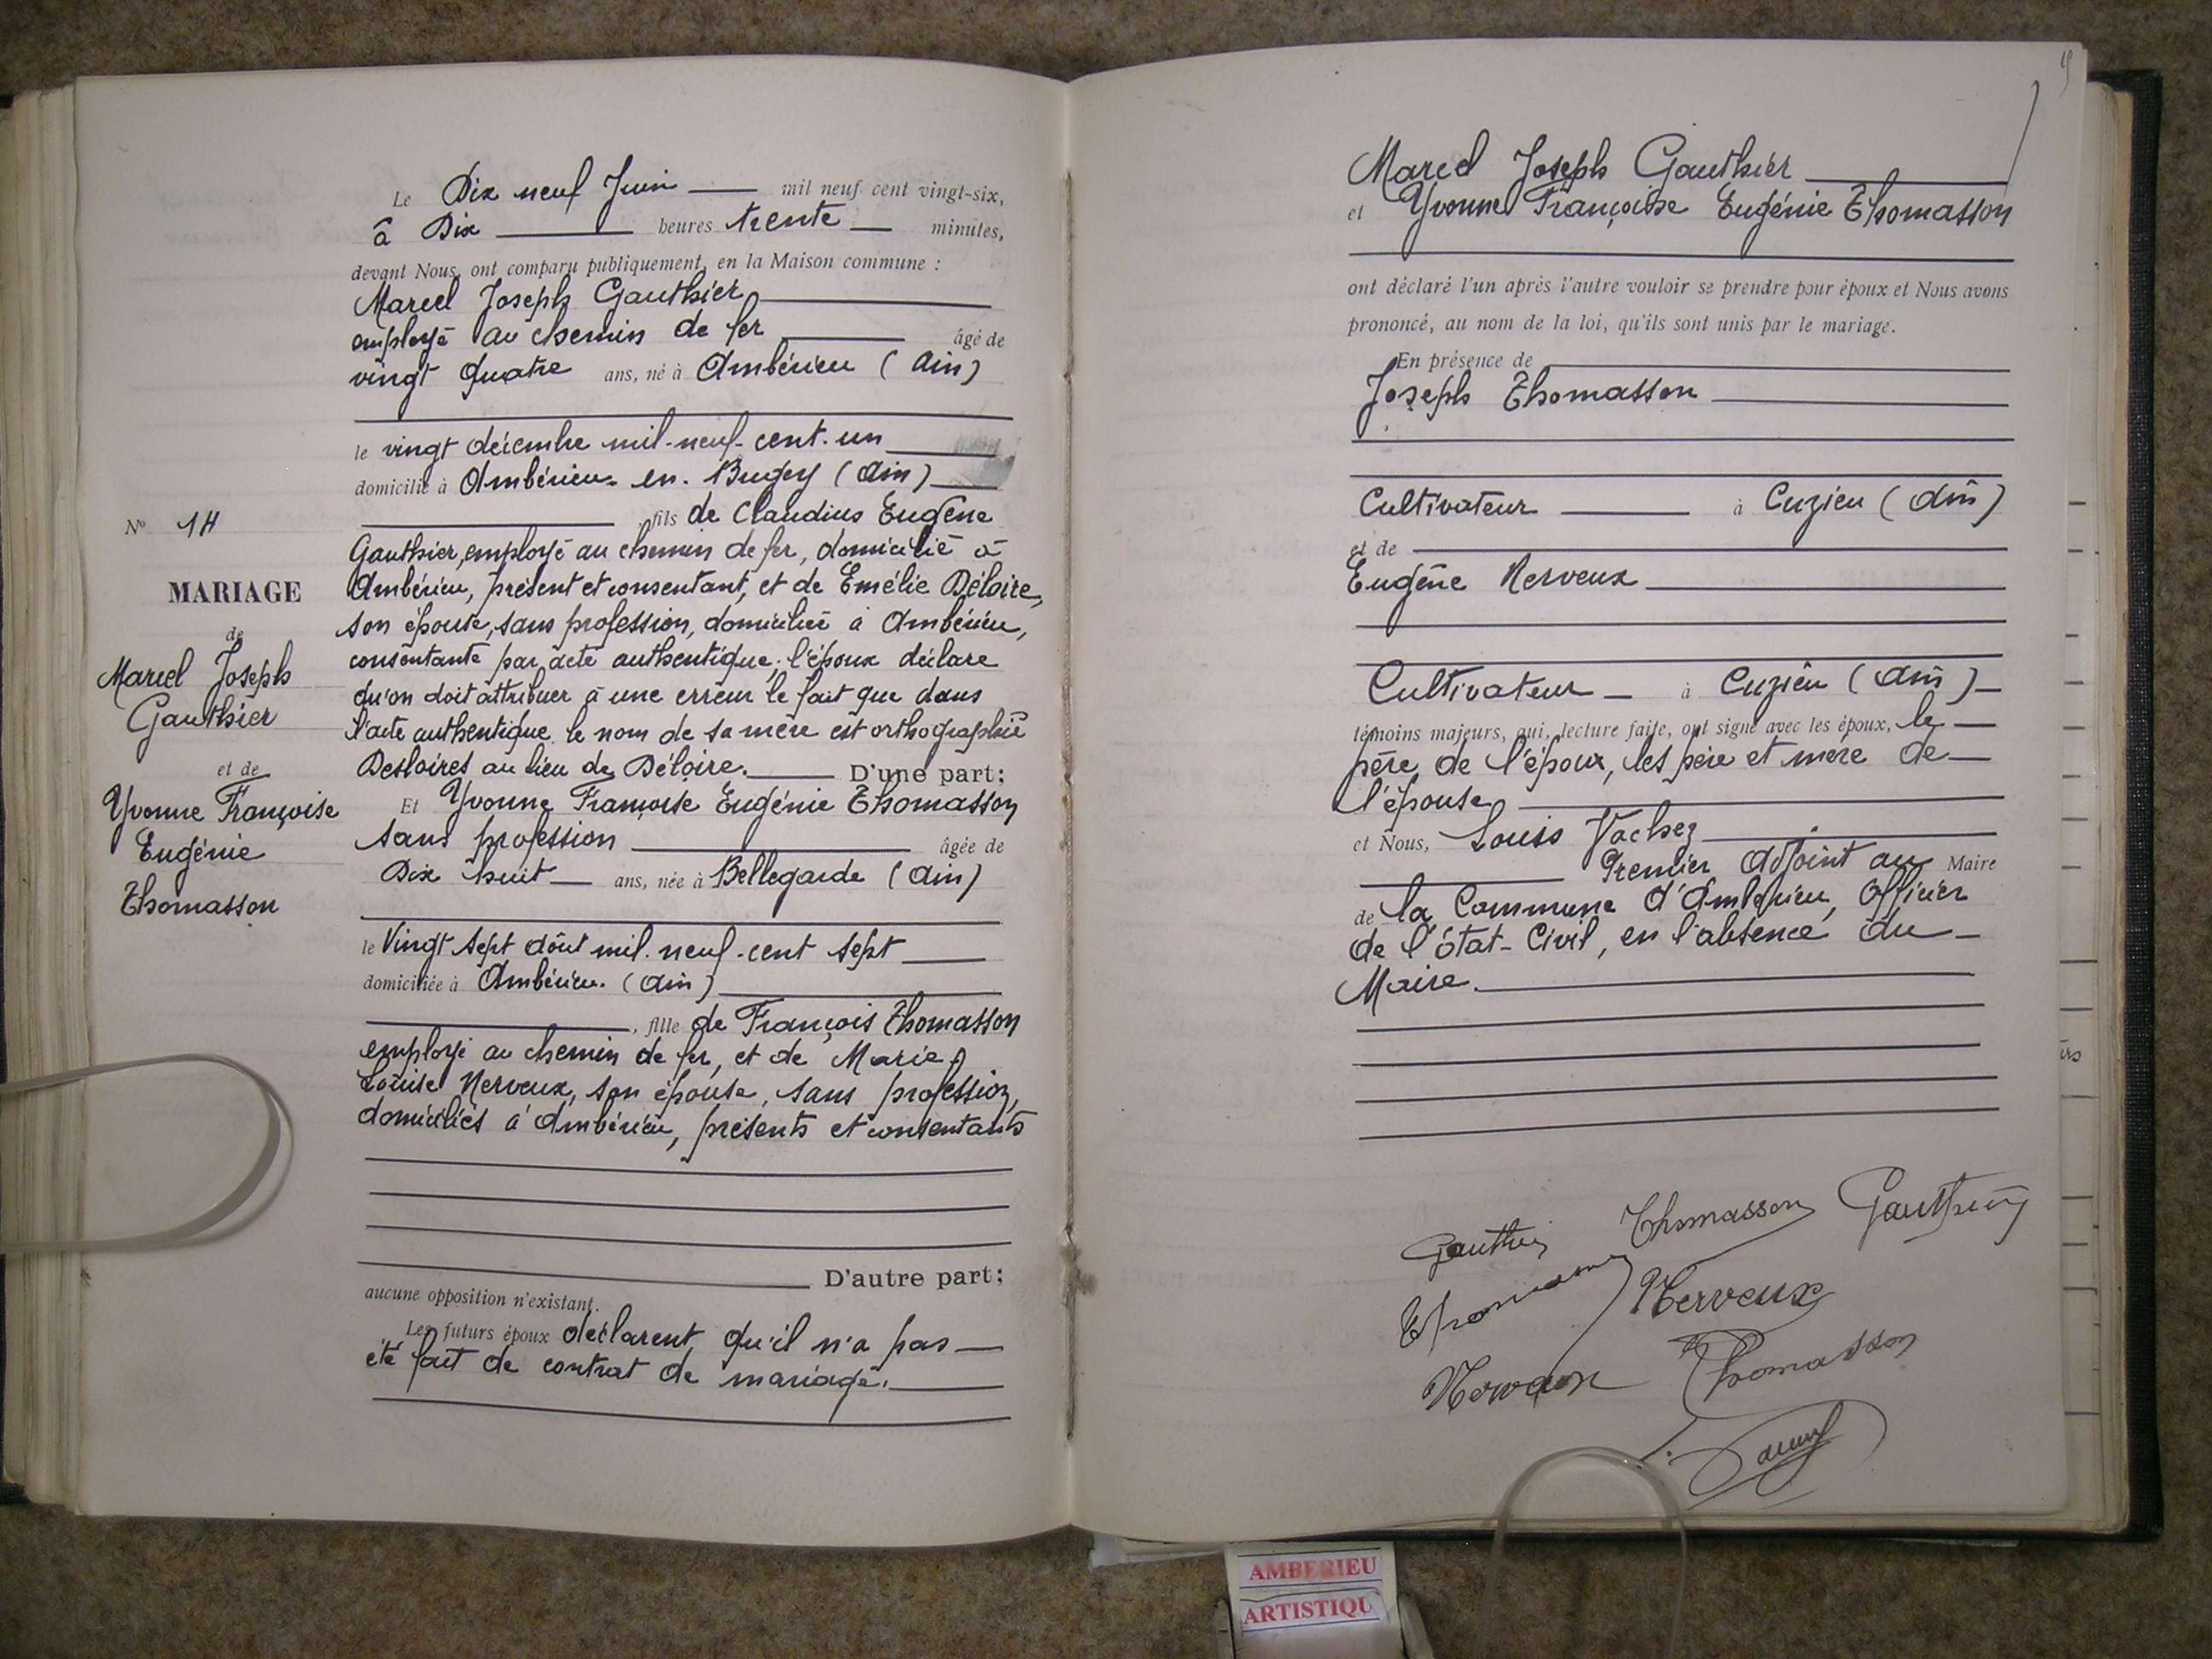 Le Dix neuf Juin mil neuf cent vingt-six,
à Dix heures trente minutes,
devant Nous, ont comparu publiquement, en la Maison commune :
Marcel Joseph Gauthier
employé au chemin de fer âgé de
vingt quatre ans, né à Ambérieu (Ain)
le vingt décembre mil-neuf-cent-un
domicilié à Ambérieu-en-Bugey (Ain)
fils de Claudius Eugène
Gauthier, employé au chemin de fer, domicilié à
Ambérieu, présent et consentant, et de Emélie Déloire,
son épouse, sans profession, domiciliée à Ambérieu,
consentante par acte authentique; l'époux déclare
qu'on doit attribuer à une erreur le fait que dans
l'acte authentique le nom de sa mère est orthographié
Desloires au lieu de Déloire. D'une part;
Et Yvonne Françoise Eugénie Thomasson
sans profession âgée de
Dix huit ans, née à Bellegarde (Ain)
le Vingt sept Août mil-neuf-cent sept
domiciliée à Ambérieu (Ain)
, fille de François Thomasson
employé au chemin de fer, et de Marie
Louise Nerveux, son épouse, sans profession,
domiciliés à Ambérieu, présents et consentants
D'autre part;
aucune opposition n'existant.
Les futurs époux déclarent qu'il n'a pas
été fait de contrat de mariage.
N° 14
MARIAGE
de
Marcel Joseph
Gauthier
et de
Yvonne Françoise
Eugénie
Thomasson
Marcel Joseph Gauthier
et Yvonne Françoise Eugénie Thomasson
ont déclaré l'un après l'autre vouloir se prendre pour époux et Nous avons
prononcé, au nom de la loi, qu'ils sont unis par le mariage.
En présence de
Joseph Thomasson
Cultivateur à Cuzieu (Ain)
et de
Eugène Nerveux
Cultivateur à Cuzieu (Ain)
témoins majeurs, qui, lecture faite, ont signé avec les époux, le
père de l'époux, les père et mère de
l'épouse
et Nous, Louis Vachez
Premier Adjoint au Maire
de la Commune d'Ambérieu, Officier
de l'état-Civil, en l'absence du
Maire.
Gauthier Thomasson Gauthier
Thomasson Nerveux
Nerveux Thomasson
AMBERIEU
ARTISTIQU